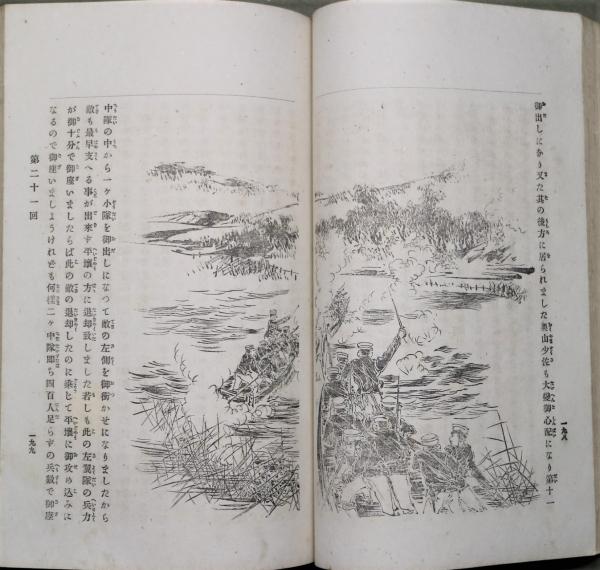 御出しになり又た其の後方に居られました奥山少佐も大礙御心配になり第十一
一九八
中隊の中から一ヶ小隊を御出しになつて敵の左側を御衝かせになりましたから
敵も最早支へる事が出来ず平壌の方に退却致しました若しも此の左翼隊の兵力
が御十分で御座いましたらば此の敵の退却したのに乗じて平壌に御攻め込みに
なるので御座いましようけれども何様二ヶ中隊即ち四百人足らずの兵数で御座
第二十一回
一九九